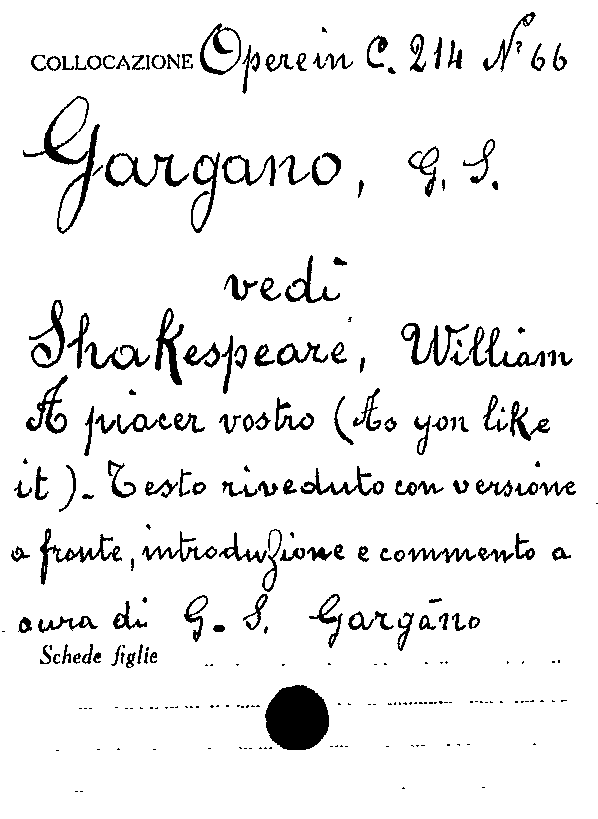 COLLOCAZIONE Opere in C. 214 N° 66
Gargano, G. S.
vedi
Shakespeare, William
A piacer vostro (As yon like
it). Testo riveduto con versione
a fronte, introduzione e commento a
cura di G. S. Gargano
Schede figlie